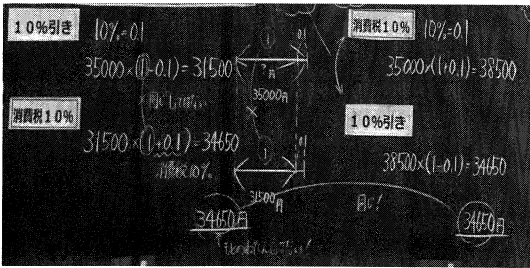 10%引き
10%=0.1
35000×(1-0.1)=31500
消費税10%
31500×(1+0.1)=34650
消費税10%
1
0.1
?円
35000円
1
0.1
31500円
34650円
消費税10%
10%=0.1
35000×(1+0.1)=38500
10%引き
38500×(1-0.1)=34650
同じ!
34650円